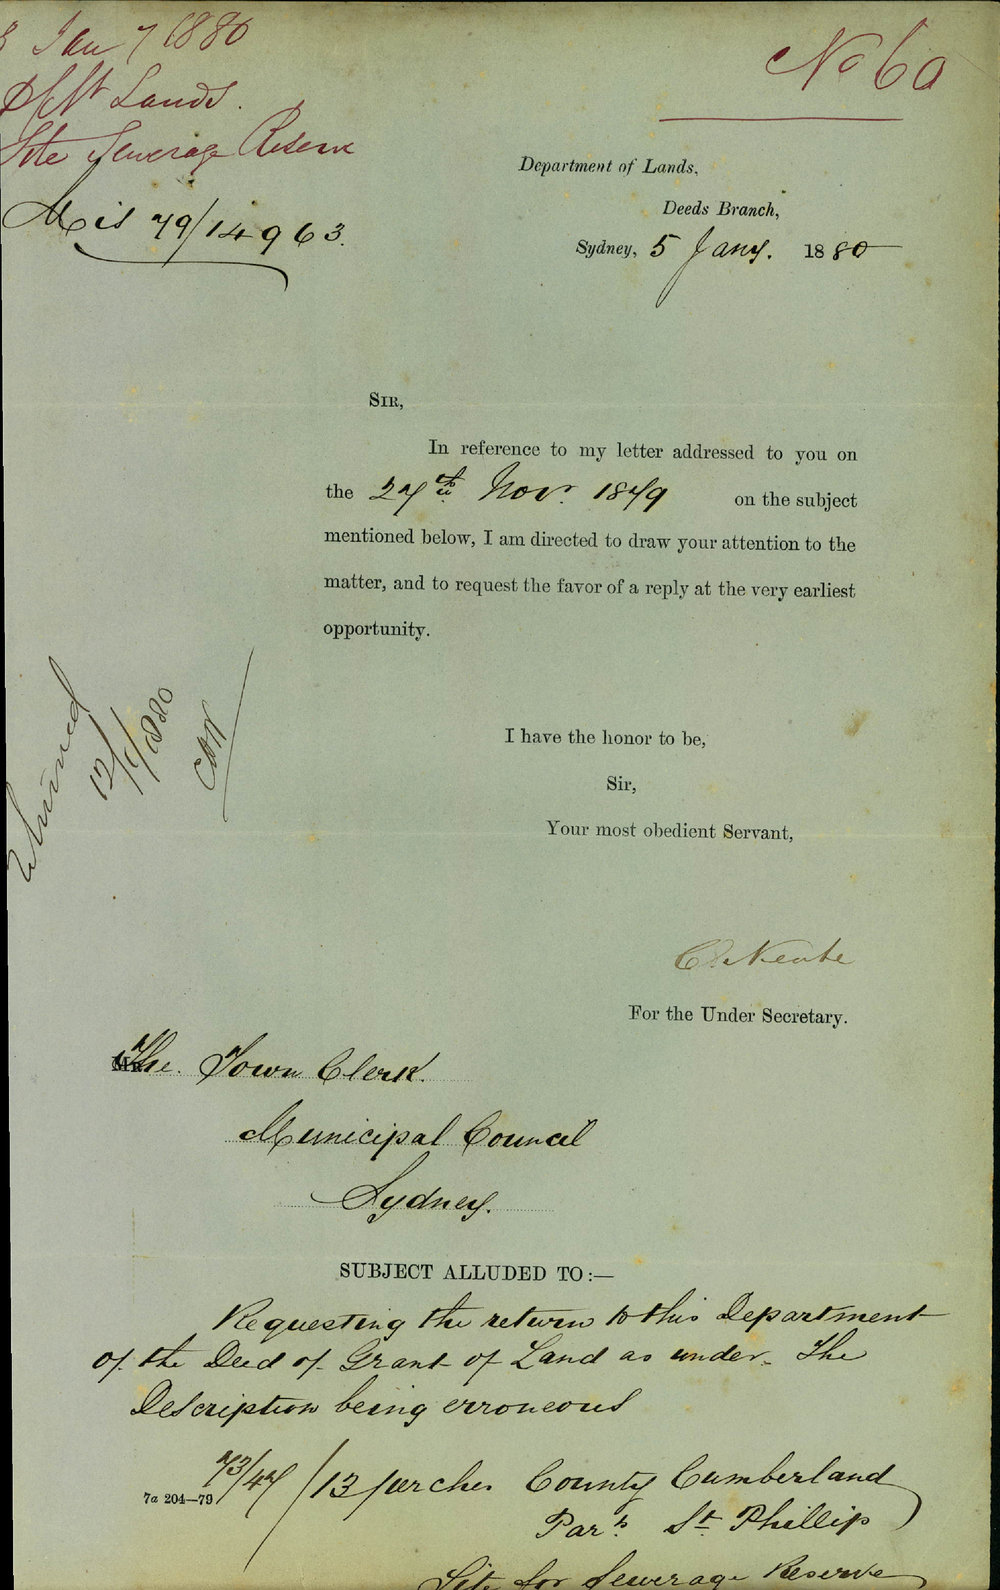 Jan 7 1880
No 60
Dept Lands.
Site Sewerage Reserve
Mis 79/14963.
Department of Lands,
Deeds Branch,
Sydney, 5 Jany. 1880
SIR,
In reference to my letter addressed to you on
the 27th Novr 1879 on the subject
mentioned below, I am directed to draw your attention to the
matter, and to request the favor of a reply at the very earliest
opportunity.
12/1/1880
I have the honor to be,
Sir,
Your most obedient Servant,
For the Under Secretary.
The Town Clerk.
Municipal Council
Sydney.
SUBJECT ALLUDED TO:—
Requesting the return to this Department
of the Deed of Grant of Land as under. The
Description being erroneous
73/47/13 perches County Cumberland
7a 204—79
Parh St Phillip
Site for Sewerage Reserve